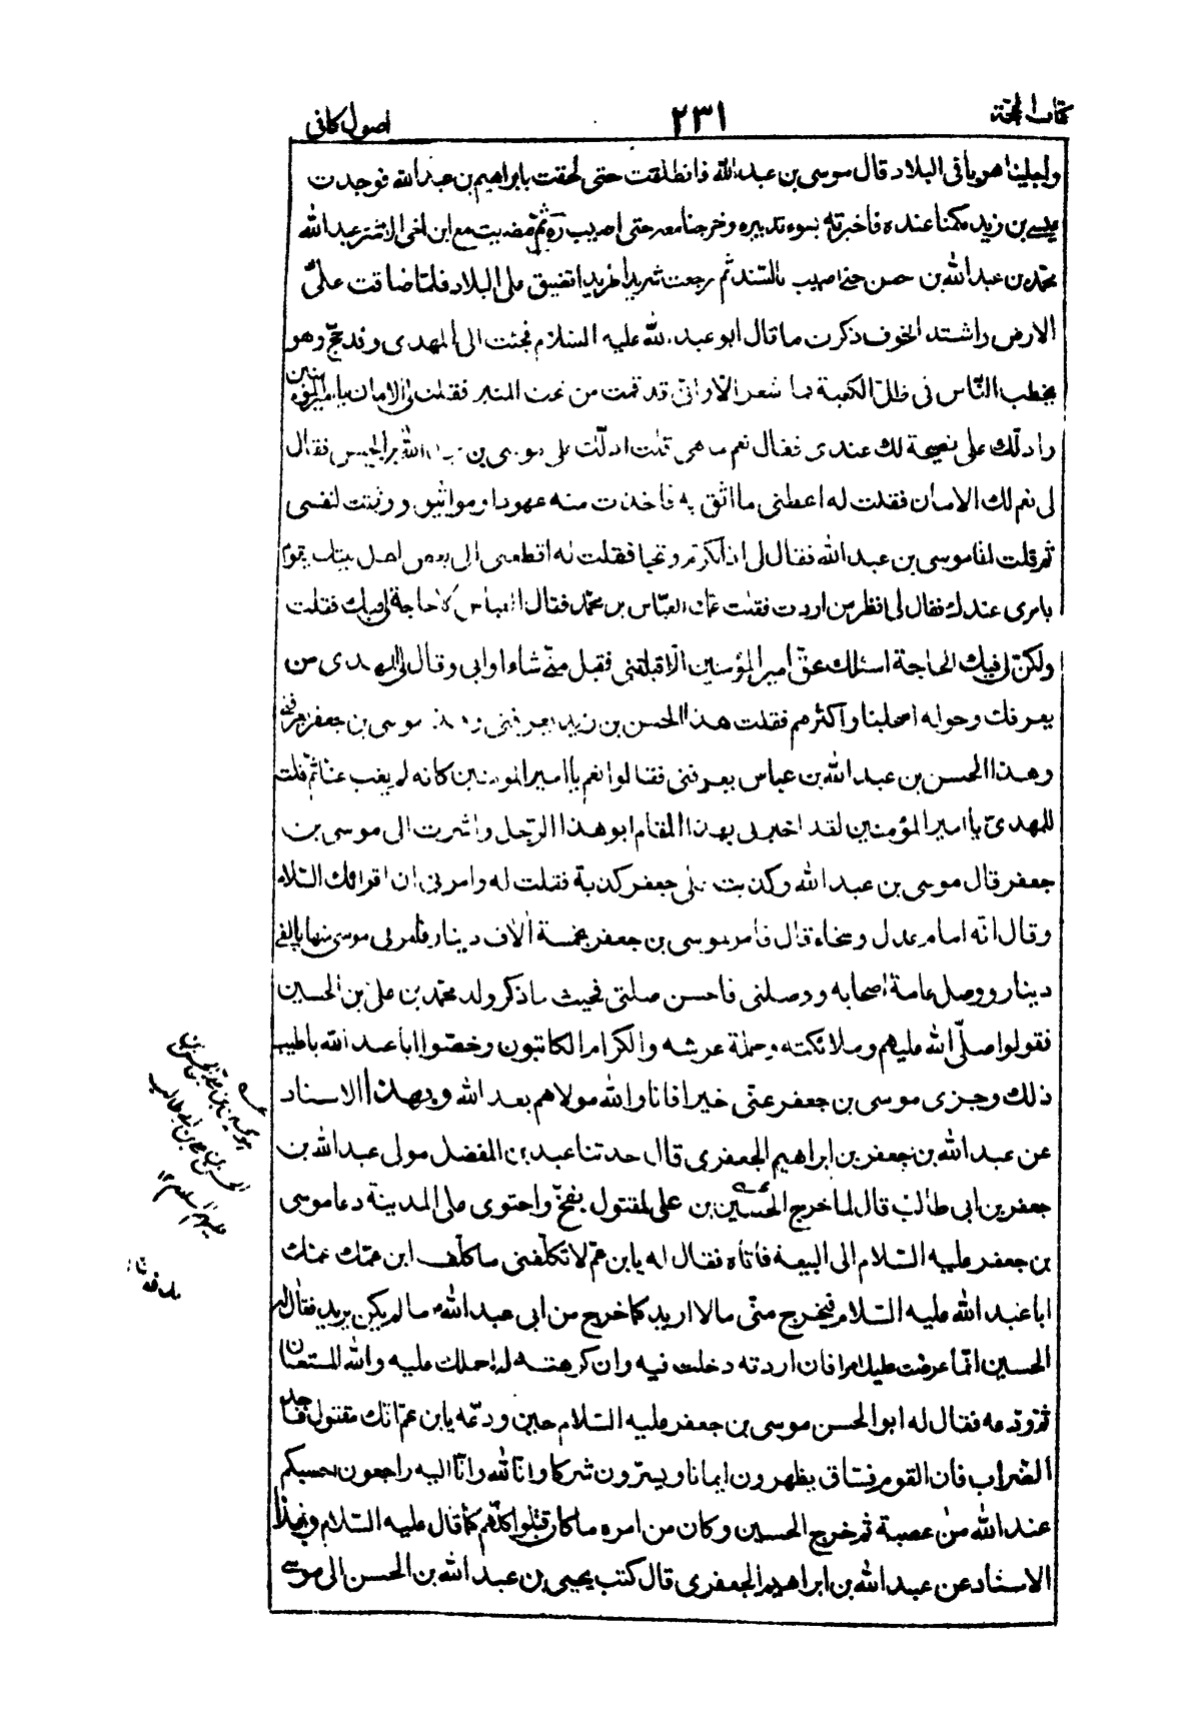 كتاب الحجة ٢٣١ اصول كافى
هو باقى البلاد قال موسى بن عبد الله فانطلقت حتى لحقت بابراهيم بن عبد الله فوجدت
عيسى بن زيد مكمنا عنده فاخبرته بسوء تدبيره وخرجنا معه حتى اصيب ره ثم مضيت مع ابن اخى الاشتر عبد الله
محمد بن عبد الله بن حسن حتى اصيب بالسند ثم رجعت شريدا طريدا تضيق على البلاد فلما ضاقت على
الارض واشتد الخوف ذكرت ما قال ابو عبد الله عليه السلام فجئت الى المهدى وقد حج وهو
يخطب الناس فى ظل الكعبة فما شعر الا وانى قد قمت من تحت المنبر فقلت لى الامان يا امير المؤمنين
وادلك على نصيحة لك عندى فقال نعم ما هى قلت ادلك على موسى بن عبد الله بن الحسن فقال
لى نعم لك الامان فقلت له اعطنى ما اثق به فاخذت منه عهودا ومواثيق ووثقت لنفسى
ثم قلت انا موسى بن عبد الله فقال لى اذا تكرم وتحبا فقلت له اقطعنى الى بعض اهل بيتك يقوم
بامرى عندك فقال لى انظر من اردت فقلت عمك العباس بن محمد فقال العباس لا حاجة لى فيك فقلت
ولكن لى فيك الحاجة اسئلك بحق امير المؤمنين الا قبلتنى فقبل منى شاء او ابى وقال لى المهدى من
يعرفك وحوله اصحابنا واكثرهم فقلت هذا الحسن بن زيد يعرفنى وهذا موسى بن جعفر يعرفنى
وهذا الحسن بن عبد الله بن عباس يعرفنى فقالوا نعم يا امير المؤمنين كانه لم يغب عنا ثم قلت
للمهدى يا امير المؤمنين لقد اخبرنى بهذا المقام ابو هذا الرجل واشرت الى موسى بن
جعفر قال موسى بن عبد الله وكذبت على جعفر كذبة فقلت له وامرنى ان اقرائك السلام
وقال انه امام عدل وسخاء قال فامر لموسى بن جعفر بخمسة آلاف دينار فامر لى موسى منها بالفى
دينار ووصل عامة اصحابه ووصلنى فاحسن صلتى فحيث ما ذكر ولد محمد بن على بن الحسين
فقولوا صلى الله عليهم وملائكته وحملة عرشه والكرام الكاتبون وخصوا ابا عبد الله باطيب
ذلك وجزى موسى بن جعفر عنى خيرا فانا والله مولاهم بعد الله وبهذا الاسناد
عن عبد الله بن جعفر بن ابراهيم الجعفرى قال حدثنا عبد بن المفضل مولى عبد الله بن
جعفر بن ابى طالب قال لما خرج الحسين بن على المقتول بفخ واحتوى على المدينة دعا موسى
بن جعفر عليه السلام الى البيعة فاتاه فقال له يا بن عم لا تكلفنى ما كلف ابن عمك عمك
ابا عبد الله عليه السلام فيخرج منى ما لا اريد كما خرج من ابى عبد الله ما لم يكن يريد فقال له
الحسين انما عرضت عليك امرا فان اردته دخلت فيه وان كرهته لم احملك عليه والله المستعان
ثم ودعه فقال له ابو الحسن موسى بن جعفر عليه السلام حين ودعه يا بن عم انك مقتول فاجد
الضراب فان القوم فساق يظهرون ايمانا ويسترون شركا وانا لله وانا اليه راجعون احتسبكم
عند الله من عصبة ثم خرج الحسين وكان من امره ما كان قتلوا كلهم كما قال عليه السلام وبهذا
الاسناد عن عبد الله بن ابراهيم الجعفرى قال كتب يحيى بن عبد الله بن الحسن الى موسى
عليهم السلام ١٢